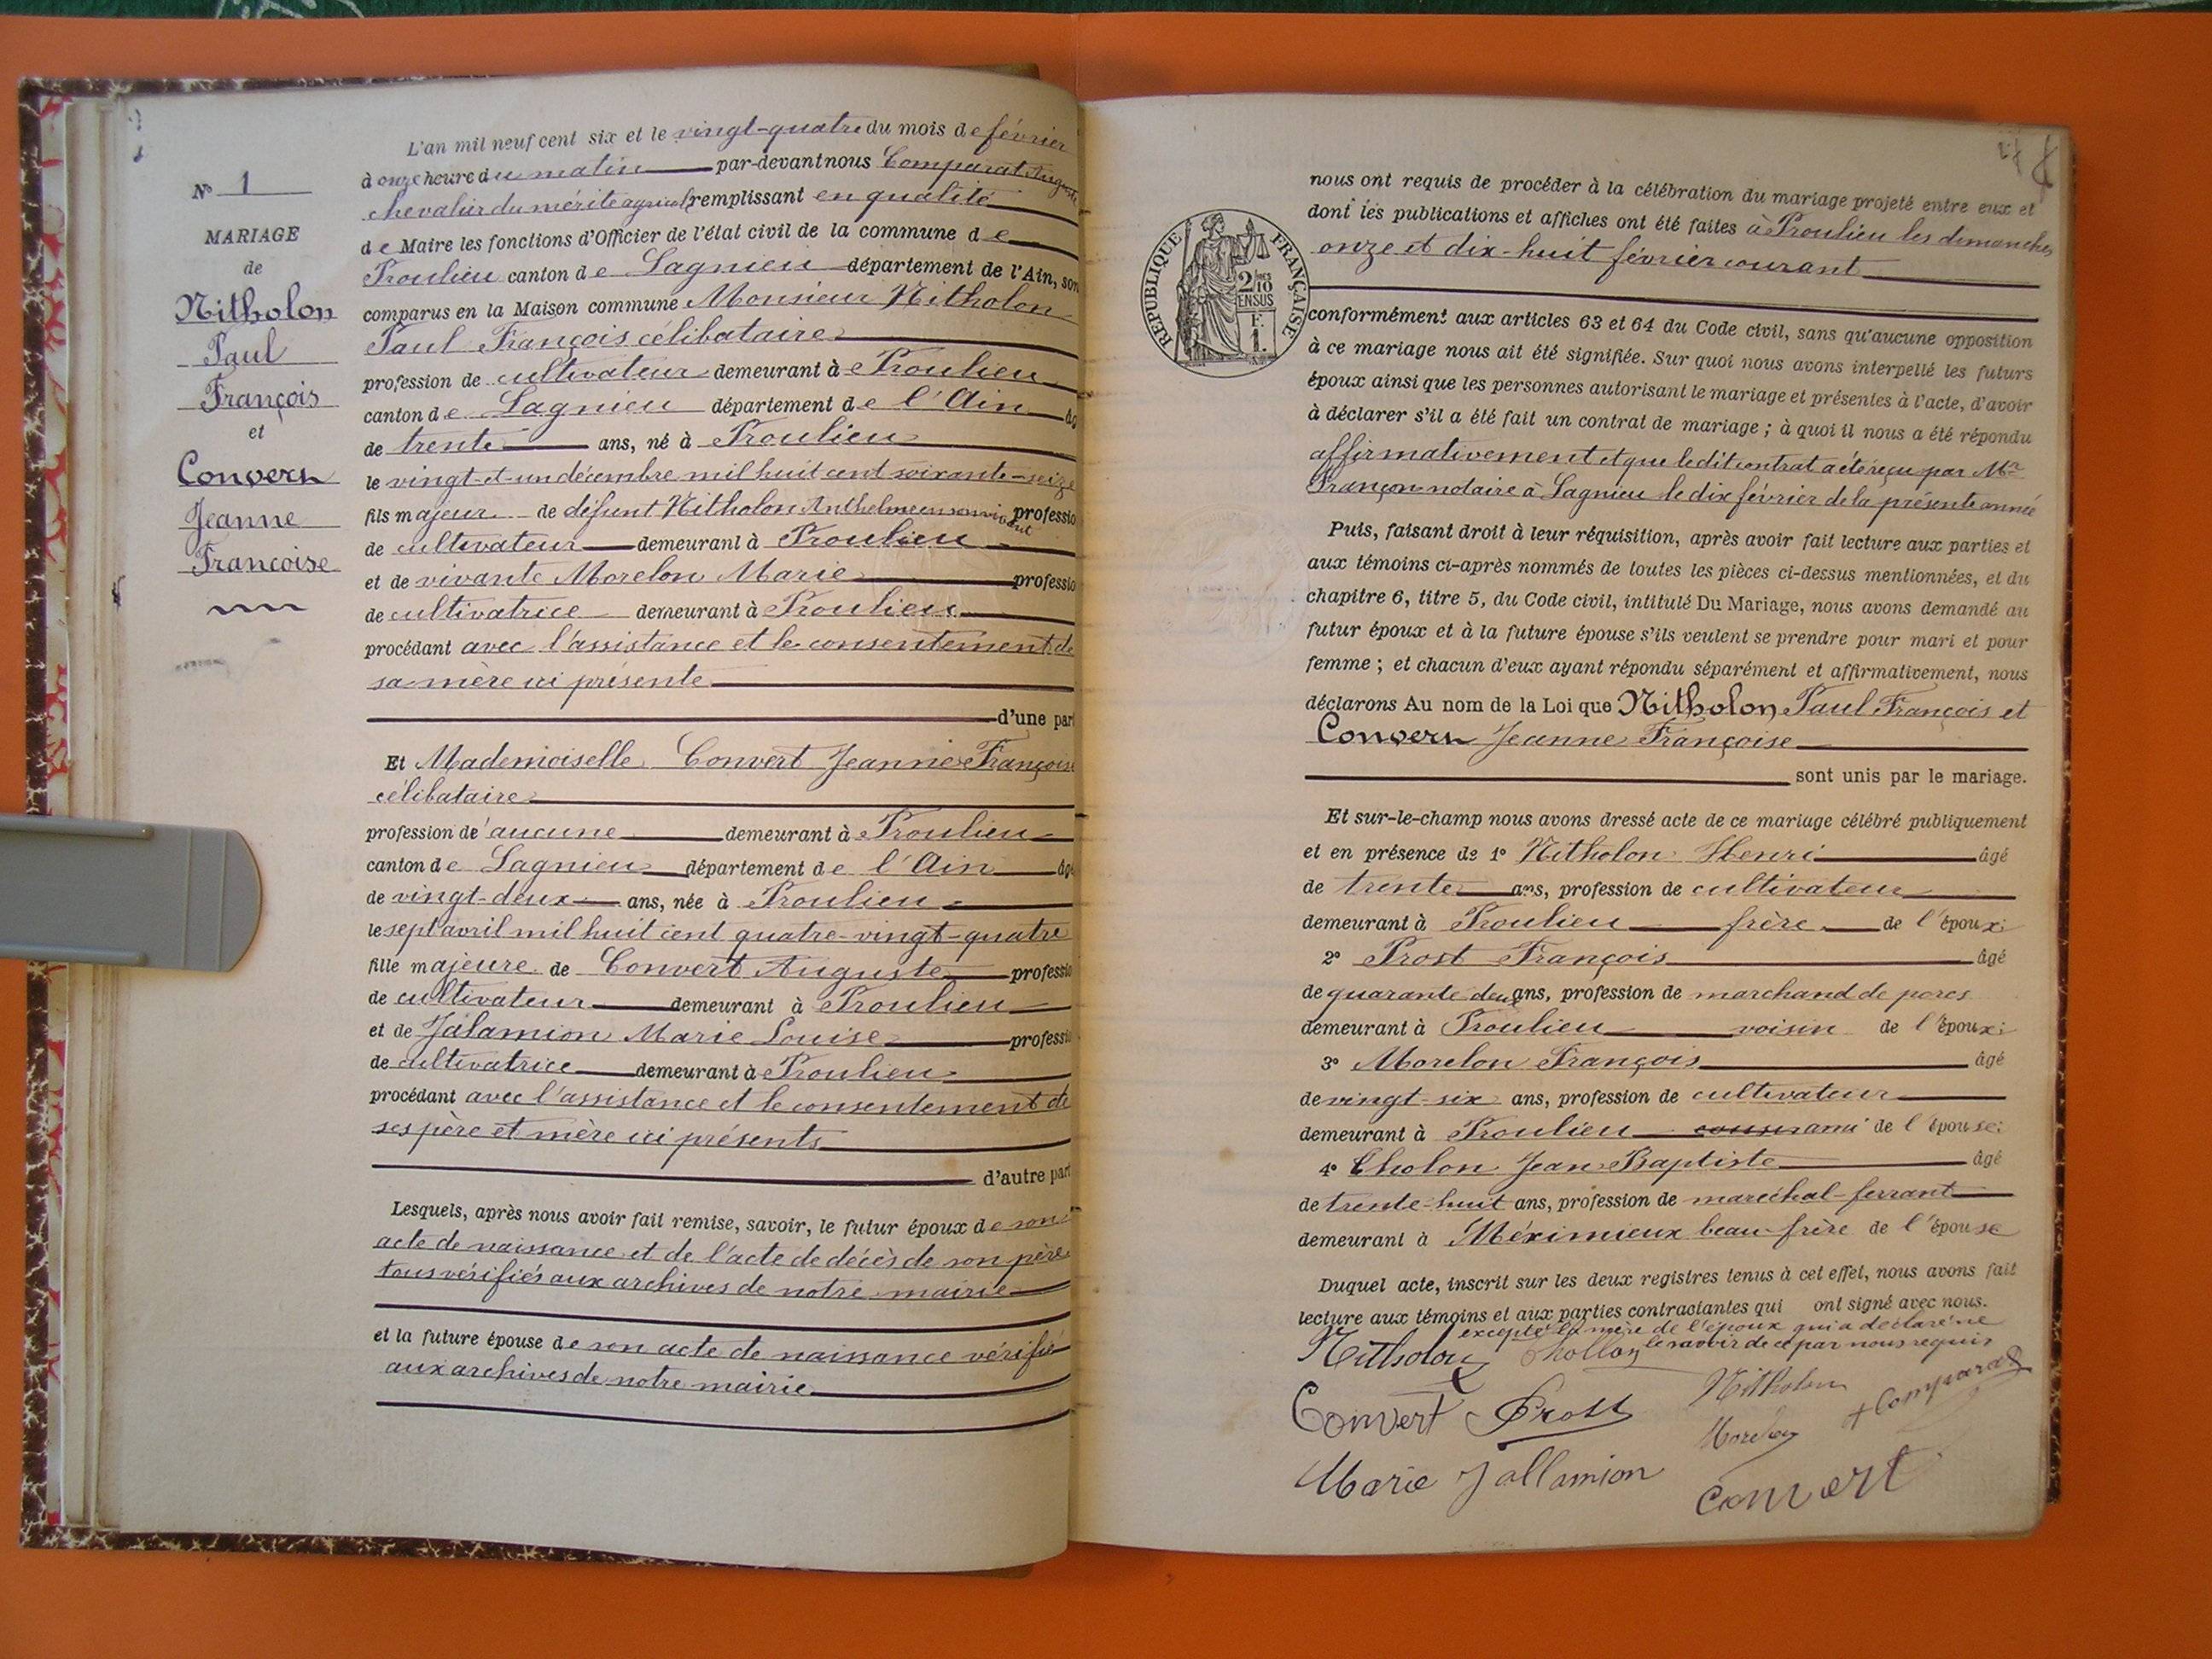 N° 1
MARIAGE
de
Nitholon
Paul
François
et
Convert
Jeanne
Francoise
L'an mil neuf cent six et le vingt-quatre du mois de février
à onze heure du matin par-devant nous Comparat Auguste
chevalier du mérite agricole remplissant en qualité
de Maire les fonctions d'Officier de l'état civil de la commune de
Proulieu canton de Lagnieu département de l'Ain, son
comparus en la Maison commune Monsieur Nitholon
Paul François célibataire
profession de cultivateur demeurant à Proulieu
canton de Lagnieu département de l'Ain âg
de trente ans, né à Proulieu
le vingt-et-un décembre mil huit cent soixante-seize
fils majeur de défunt Nitholon Anthelme en son vivant professio
de cultivateur demeurant à Proulieu
et de vivante Morelon Marie professio
de cultivatrice demeurant à Proulieu
procédant avec l'assistance et le consentement de
sa mère ici présente
d'une part
Et Mademoiselle Convert Jeanne Françoise
célibataire
profession de aucune demeurant à Proulieu
canton de Lagnieu département de l'Ain âgé
de vingt-deux ans, née à Proulieu
le sept avril mil huit cent quatre-vingt-quatre
fille majeure de Convert Auguste professio
de cultivateur demeurant à Proulieu
et de Jalamion Marie Louise professio
de cultivatrice demeurant à Proulieu
procédant avec l'assistance et le consentement de
ses père et mère ici présents
d'autre part
Lesquels, après nous avoir fait remise, savoir, le futur époux de son
acte de naissance et de l'acte de décès de son père
tous vérifiés aux archives de notre mairie
et la future épouse de son acte de naissance vérifié
aux archives de notre mairie
RÉPUBLIQUE FRANÇAISE
2/10
EN SUS
F.
1.
nous ont requis de procéder à la célébration du mariage projeté entre eux et
dont les publications et affiches ont été faites à Proulieu les dimanches
onze et dix-huit février courant
conformément aux articles 63 et 64 du Code civil, sans qu'aucune opposition
à ce mariage nous ait été signifiée. Sur quoi nous avons interpellé les futurs
époux ainsi que les personnes autorisant le mariage et présentes à l'acte, d'avoir
à déclarer s'il a été fait un contrat de mariage ; à quoi il nous a été répondu
affirmativement et que ledit contrat a été reçu par Me
Françon notaire à Lagnieu le dix février de la présente année
Puis, faisant droit à leur réquisition, après avoir fait lecture aux parties et
aux témoins ci-après nommés de toutes les pièces ci-dessus mentionnées, et du
chapitre 6, titre 5, du Code civil, intitulé Du Mariage, nous avons demandé au
futur époux et à la future épouse s'ils veulent se prendre pour mari et pour
femme ; et chacun d'eux ayant répondu séparément et affirmativement, nous
déclarons Au nom de la Loi que Nitholon Paul François et
Convert Jeanne Françoise
sont unis par le mariage.
Et sur-le-champ nous avons dressé acte de ce mariage célébré publiquement
et en présence de 1° Nitholon Henri âgé
de trente ans, profession de cultivateur
demeurant à Proulieu frère de l'époux;
2° Prost François âgé
de quarante deux ans, profession de marchand de porcs
demeurant à Proulieu voisin de l'époux;
3° Morelon François âgé
de vingt-six ans, profession de cultivateur
demeurant à Proulieu cousin ami de l'épouse;
4° Cholon Jean Baptiste âgé
de trente-huit ans, profession de maréchal-ferrant
demeurant à Méximieux beau-frère de l'épouse
Duquel acte, inscrit sur les deux registres tenus à cet effet, nous avons fait
lecture aux témoins et aux parties contractantes qui ont signé avec nous.
excepté la mère de l'époux qui a déclaré ne
le savoir de ce par nous requis
Nitholon Chollon
Nitholon
Convert Prost
Morelon + Comparat
Marie Jallamion
Convert